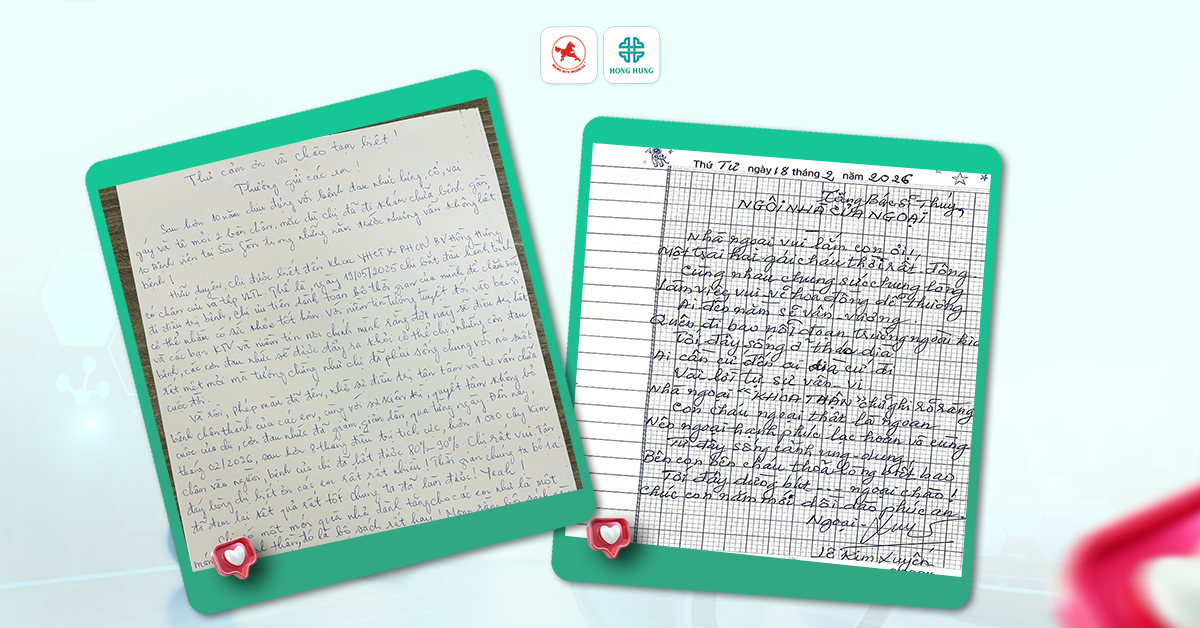 HONG HUNG
Thư cảm ơn và chào tạm biệt!
Thương gửi các em!
Sau hơn 10 năm chịu đựng với bệnh đau nhức lưng, cổ, vai
gáy và tê mỏi 2 bên chân, mặc dù chị đã đi khám chữa bệnh gần
10 Bệnh viện tại Sài Gòn trong những năm trước nhưng vẫn không hết
bệnh!
Hữu duyên, chị được biết đến Khoa YHCT & PHCN BV Hồng Hưng
cơ chân và tập VLTL. Thế là, ngày 19/05/2025 chị bắt đầu hành trình
đi điều trị bệnh, chị ưu tiên dành toàn bộ thời gian của mình để chăm sóc
có thể nhằm có sức khỏe tốt hơn. Và niềm tin tưởng tuyệt đối vào bác sĩ
và các bạn KTV và niềm tin nơi chính mình rằng đợt này sẽ điều trị hết
bệnh, các cơn đau nhức sẽ được đẩy ra khỏi cơ thể chị, những cơn đau
rất mệt mỏi mà tưởng chừng như chị đi phải sống chung với nó suốt
cuộc đời.
Và rồi, phép màu đã đến, nhờ sự điều trị tận tâm và tư vấn chữa
bệnh chân thành của các em, cùng với sự kiên trì, quyết tâm không bỏ
cuộc của chị, cơn đau nhức đã giảm, giảm dần qua từng ngày. Đến nay,
tháng 02/2026, sau hơn 8 tháng điều trị tích cực, hơn 1.000 cây kim
châm vào người, bệnh của chị đã hết được 80% - 90%. Chị rất vui. Tận
đáy lòng, chị biết ơn các em rất rất nhiều! Thời gian chúng ta bỏ ra
đã đem lại kết quả rất tốt. Chúng ta đã làm được! Yeah!
Chị có một món quà nhỏ dành tặng cho các em như là một
món thần, đó là bộ sách rất hay! Mong rằng bộ sách
Thứ Tư ngày 18 tháng 2 năm 2026
Tặng Bác Sĩ Thúy,
NGÔI NHÀ CỦA NGOẠI
Nhà ngoại vui lắm con ơi!
Một trai hai gái cháu thời rất đông
Cùng nhau chung sức chung lòng
Làm việc vui vẻ hòa đồng dễ thương
Ai đến nằm sẽ vấn vương
Quên đi bao nỗi đoạn trường ngoài kia
Tôi đây sống ở thảo dìa
Ai cần cứ đến ai dìa cứ đi
Vài lời tự sự vân vi
Nhà ngoại "KHOA THẬN" chữ ghi rõ ràng
Con cháu ngoại thật là ngoan
Nên ngoại hạnh phúc lạc hoan vô cùng
Từ đây sống cảnh ung dung
Bên con bên cháu thỏa lòng biết bao
Tôi đây dừng bút ... ngoại chào!
Chúc con năm mới dồi dào phúc an.
Ngoại - Huy
18 Kim Xuyến